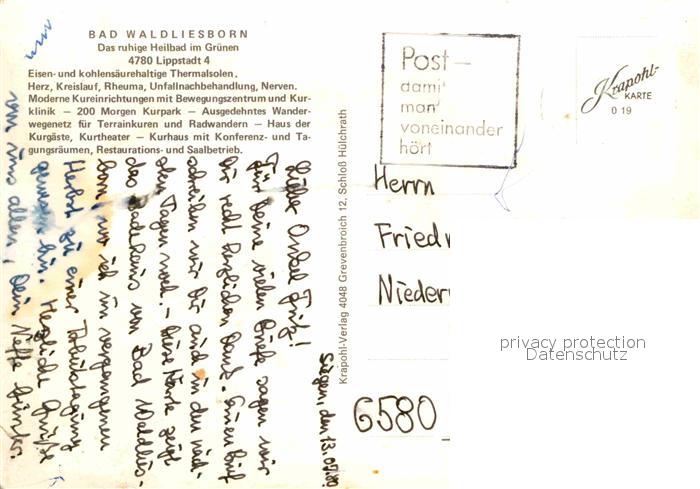 BAD WALDLIESBORN
Das ruhige Heilbad im Grünen
4780 Lippstadt 4
Eisen- und kohlensäurehaltige Thermalsolen.
Herz, Kreislauf, Rheuma, Unfallnachbehandlung, Nerven.
Moderne Kureinrichtungen mit Bewegungszentrum und Kur-
klinik — 200 Morgen Kurpark — Ausgedehntes Wander-
wegenetz für Terrainkuren und Radwandern — Haus der
Kurgäste, Kurtheater — Kurhaus mit Konferenz- und Ta-
gungsräumen, Restaurations- und Saalbetrieb.
Siegen, den 13.02.80
Lieber Onkel Fritz!
Für Deine vielen Briefe sagen wir
Dir recht herzlichen Dank. Einen Brief
schreiben wir Dir auch in den näch-
sten Tagen noch. – Diese Karte zeigt
das Badehaus von Bad Waldlies-
born, wo ich im vergangenen
Herbst zu einer Tagung
gewesen bin. Herzliche Grüße
von uns allen, Dein Neffe Günter.
Krapohl-Verlag 4048 Grevenbroich 12, Schloß Hülchrath
Post —
damit
man
voneinander
hört
Krapohl-
KARTE
0 19
Herrn
Friedr
Nieder
6580
privacy protection
Datenschutz